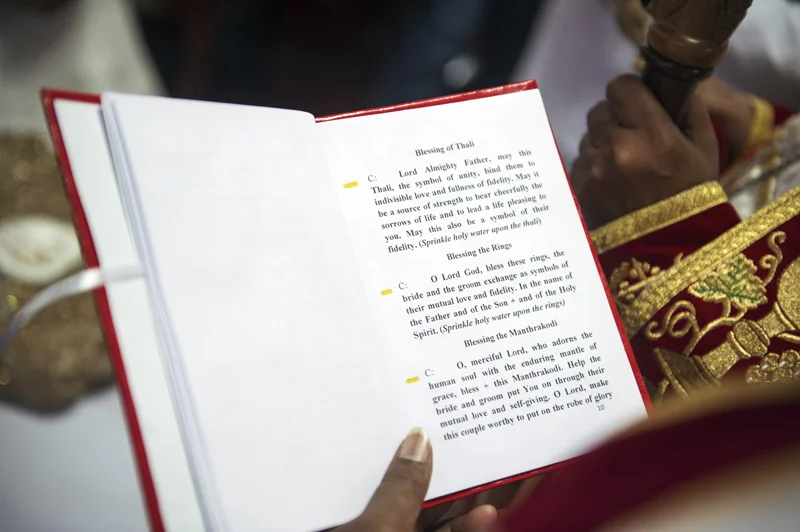 Blessing of Thali
C: Lord Almighty Father, may this
Thali, the symbol of unity, bind them to
indivisible love and fullness of fidelity. May it
be a source of strength to bear cheerfully the
sorrows of life and to lead a life pleasing to
you. May this also be a symbol of their
fidelity. (Sprinkle holy water upon the thali)
Blessing the Rings
C: O Lord God, bless these rings, the
bride and the groom exchange as symbols of
their mutual love and fidelity. In the name of
the Father and of the Son + and of the Holy
Spirit. (Sprinkle holy water upon the rings)
Blessing the Manthrakodi
C: O, merciful Lord, who adorns the
human soul with the enduring mantle of
grace, bless + this Manthrakodi. Help the
bride and groom put You on through their
mutual love and self-giving. O Lord, make
this couple worthy to put on the robe of glory
10